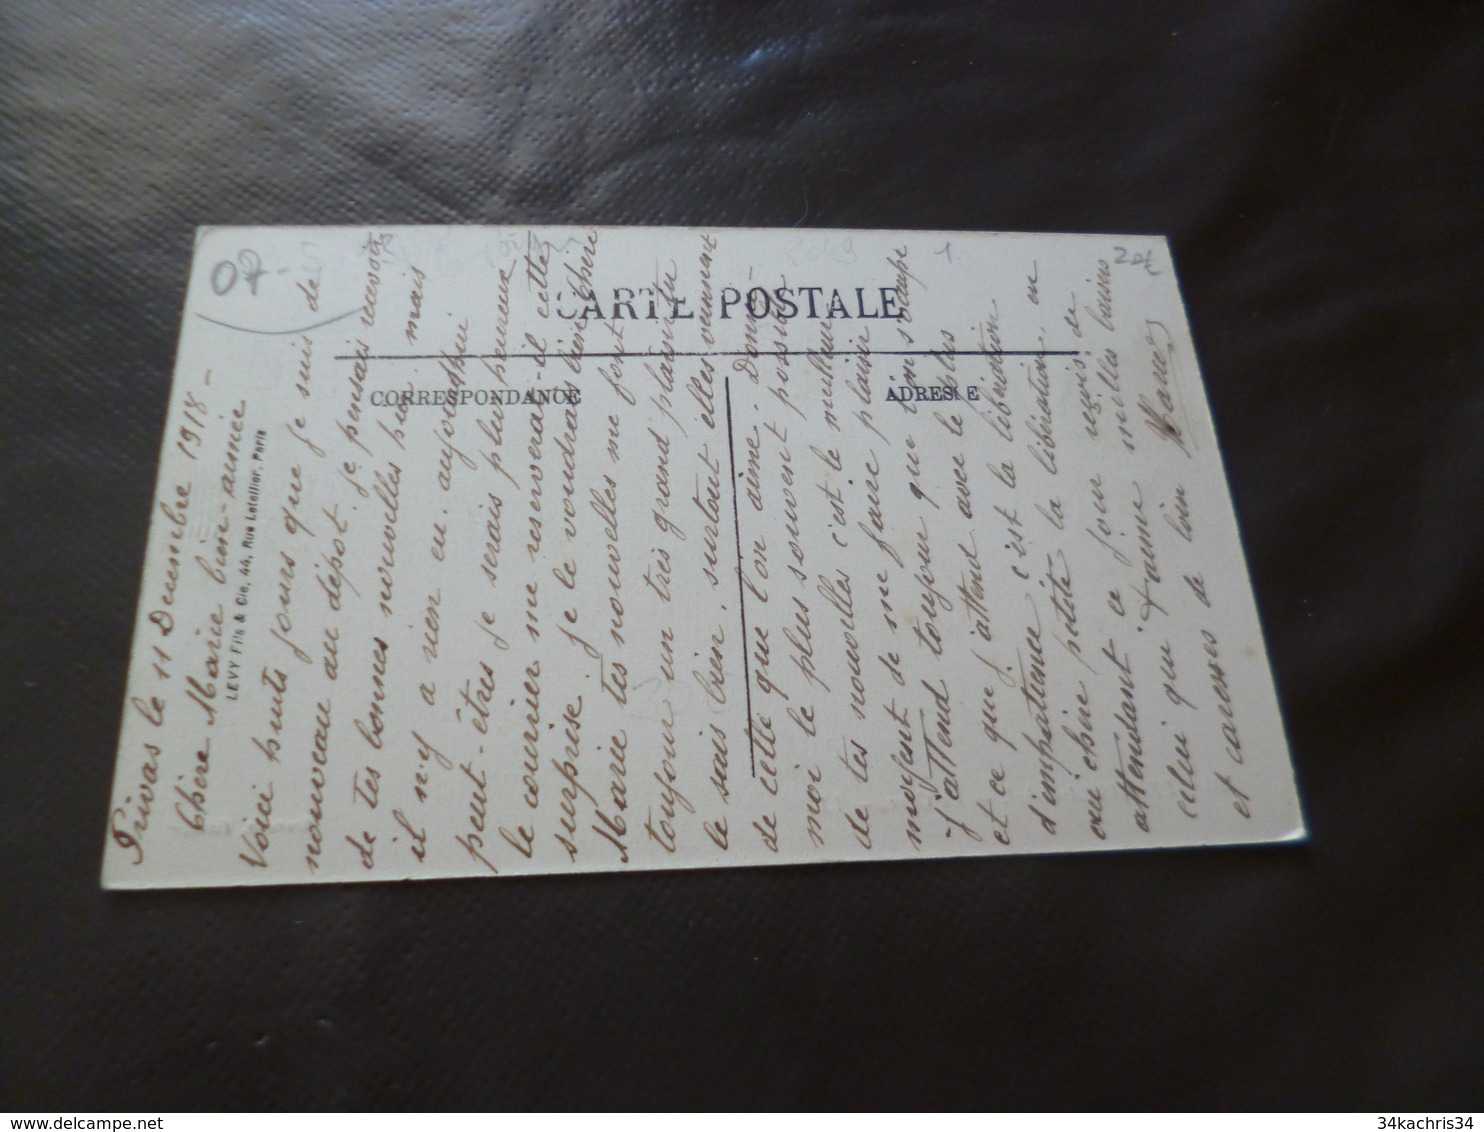 Privas le 11 Decembre 1918 -
Chère Marie bien-aimée
Voici huits jours que je suis de
nouveau au dépot. je pensais recevoir
de tes bonnes nouvelles hier. mais
il n'y a rien eu. aujourd'hui
peut-êtres je serais plus heureux
le courrier me reserverai-il cette
surprise. je le voudrais bien Chère
Marie tes nouvelles me font
toujours un tres grand plaisir tu
le sais bien. surtout elles viennent
de cette que l'on aime. Donne-
moi le plus souvent possible
de tes nouvelles c'est le meilleur
moyent de me faire plaisir
j'attend toujour que
et ce que j'attend avec le plus
d'impatience c'est la libération
oui chère petite la libération. en
attendant ce jour reçois de
celui qui t'aime milles baisers
et caresses de loin
CARTE POSTALE
CORRESPONDANCE
ADRESSE
LEVY Fils & Cie, 44, Rue Letellier, Paris
07-
1
2€
34kachris34